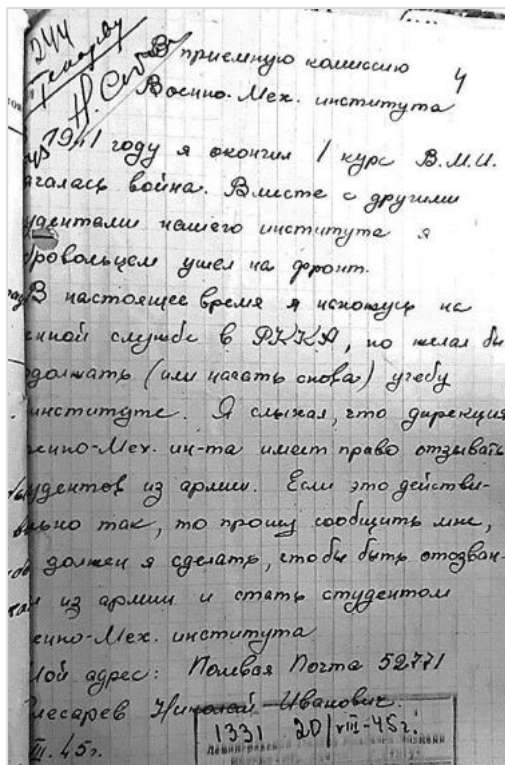 244
В приемную комиссию
Военно-Мех. института
1941 году я окончил 1 курс В.М.И.
чалась война. Вместе с другими
удентами нашего института я
бровольцем ушел на фронт.
В настоящее время я нахожусь на
енной службе в РККА, но желал бы
одолжать (или начать снова) учебу
институте. Я слыхал, что дирекция
оенно-Мех. ин-та имеет право отзывать
удентов из армии. Если это действи-
ельно так, то прошу сообщить мне,
должен я сделать, чтобы быть отозван-
из армии и стать студентом
оенно-Мех. института
Мой адрес: Полевая Почта 52771
Слесарев Николай Иванович.
III.45г.
1331 20/VIII-45г.